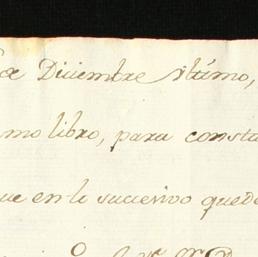 de Diciembre ultimo,
mo libro, para consta
ue en lo sucesivo quede